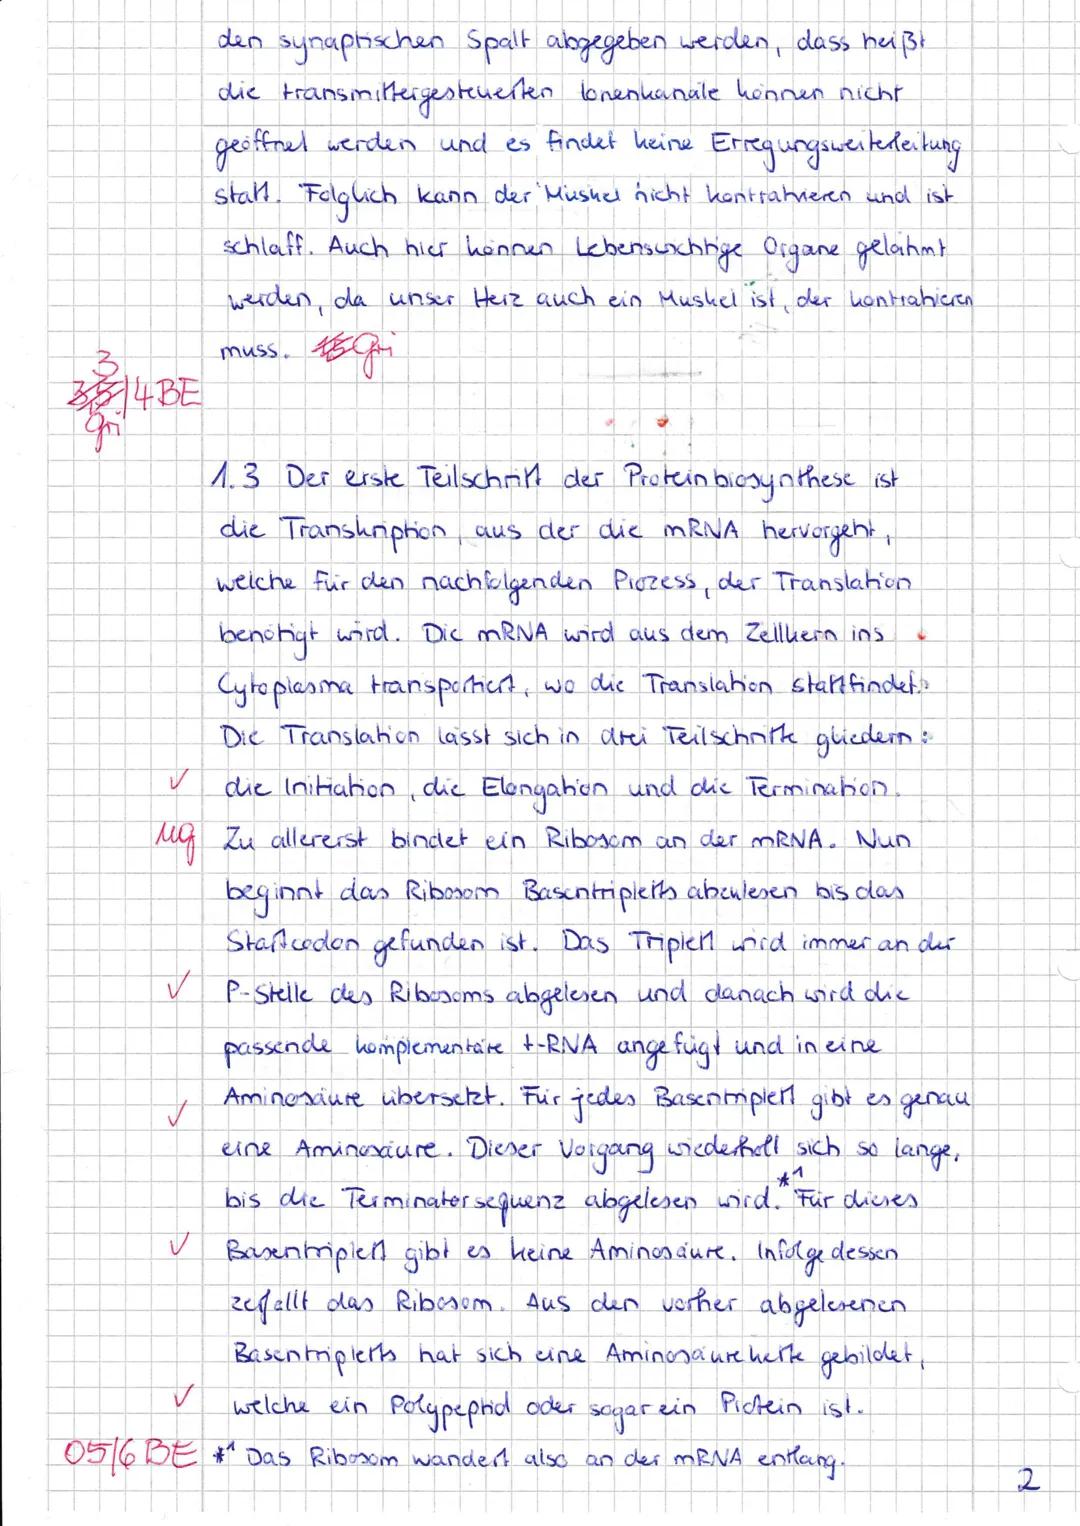 den synaptischen Spalt abgegeben werden, dass heißt
die transmittergesteuerten Ionenkanäle können nicht
geöffnet werden und es findet keine Erregungsweiterleitung
statt. Folglich kann der Muskel nicht kontrahieren und ist
schlaff. Auch hier können Lebenswichtige Organe gelähmt
werden, da unser Herz auch ein Muskel ist, der kontrahieren
muss. gri
3
/4 BE
gri
1.3 Der erste Teilschritt der Proteinbiosynthese ist
die Transkription, aus der die mRNA hervorgeht,
welche für den nachfolgenden Prozess, der Translation
benötigt wird. Die mRNA wird aus dem Zellkern ins
Cytoplasma transportiert, wo die Translation stattfindet.
Die Translation lässt sich in drei Teilschritte gliedern:
✓ die Initiation, die Elongation und die Termination.
ug Zu allererst bindet ein Ribosom an der mRNA. Nun
beginnt das Ribosom Basentripletts abzulesen bis das
Startcodon gefunden ist. Das Triplett wird immer an der
✓ P-Stelle des Ribosoms abgelesen und danach wird die
passende komplementäre t-RNA angefügt und in eine
✓ Aminosäure übersetzt. Für jedes Basentriplett gibt es genau
eine Aminosäure. Dieser Vorgang wiederholt sich so lange,
bis die Terminatorsequenz abgelesen wird. *1 Für dieses
✓ Basentriplett gibt es keine Aminosäure. Infolge dessen
zerfällt das Ribosom. Aus den vorher abgelesenen
Basentripletts hat sich eine Aminosäurekette gebildet,
✓ welche ein Polypeptid oder sogar ein Protein ist.
05/6 BE *1 Das Ribosom wandert also an der mRNA entlang.
2